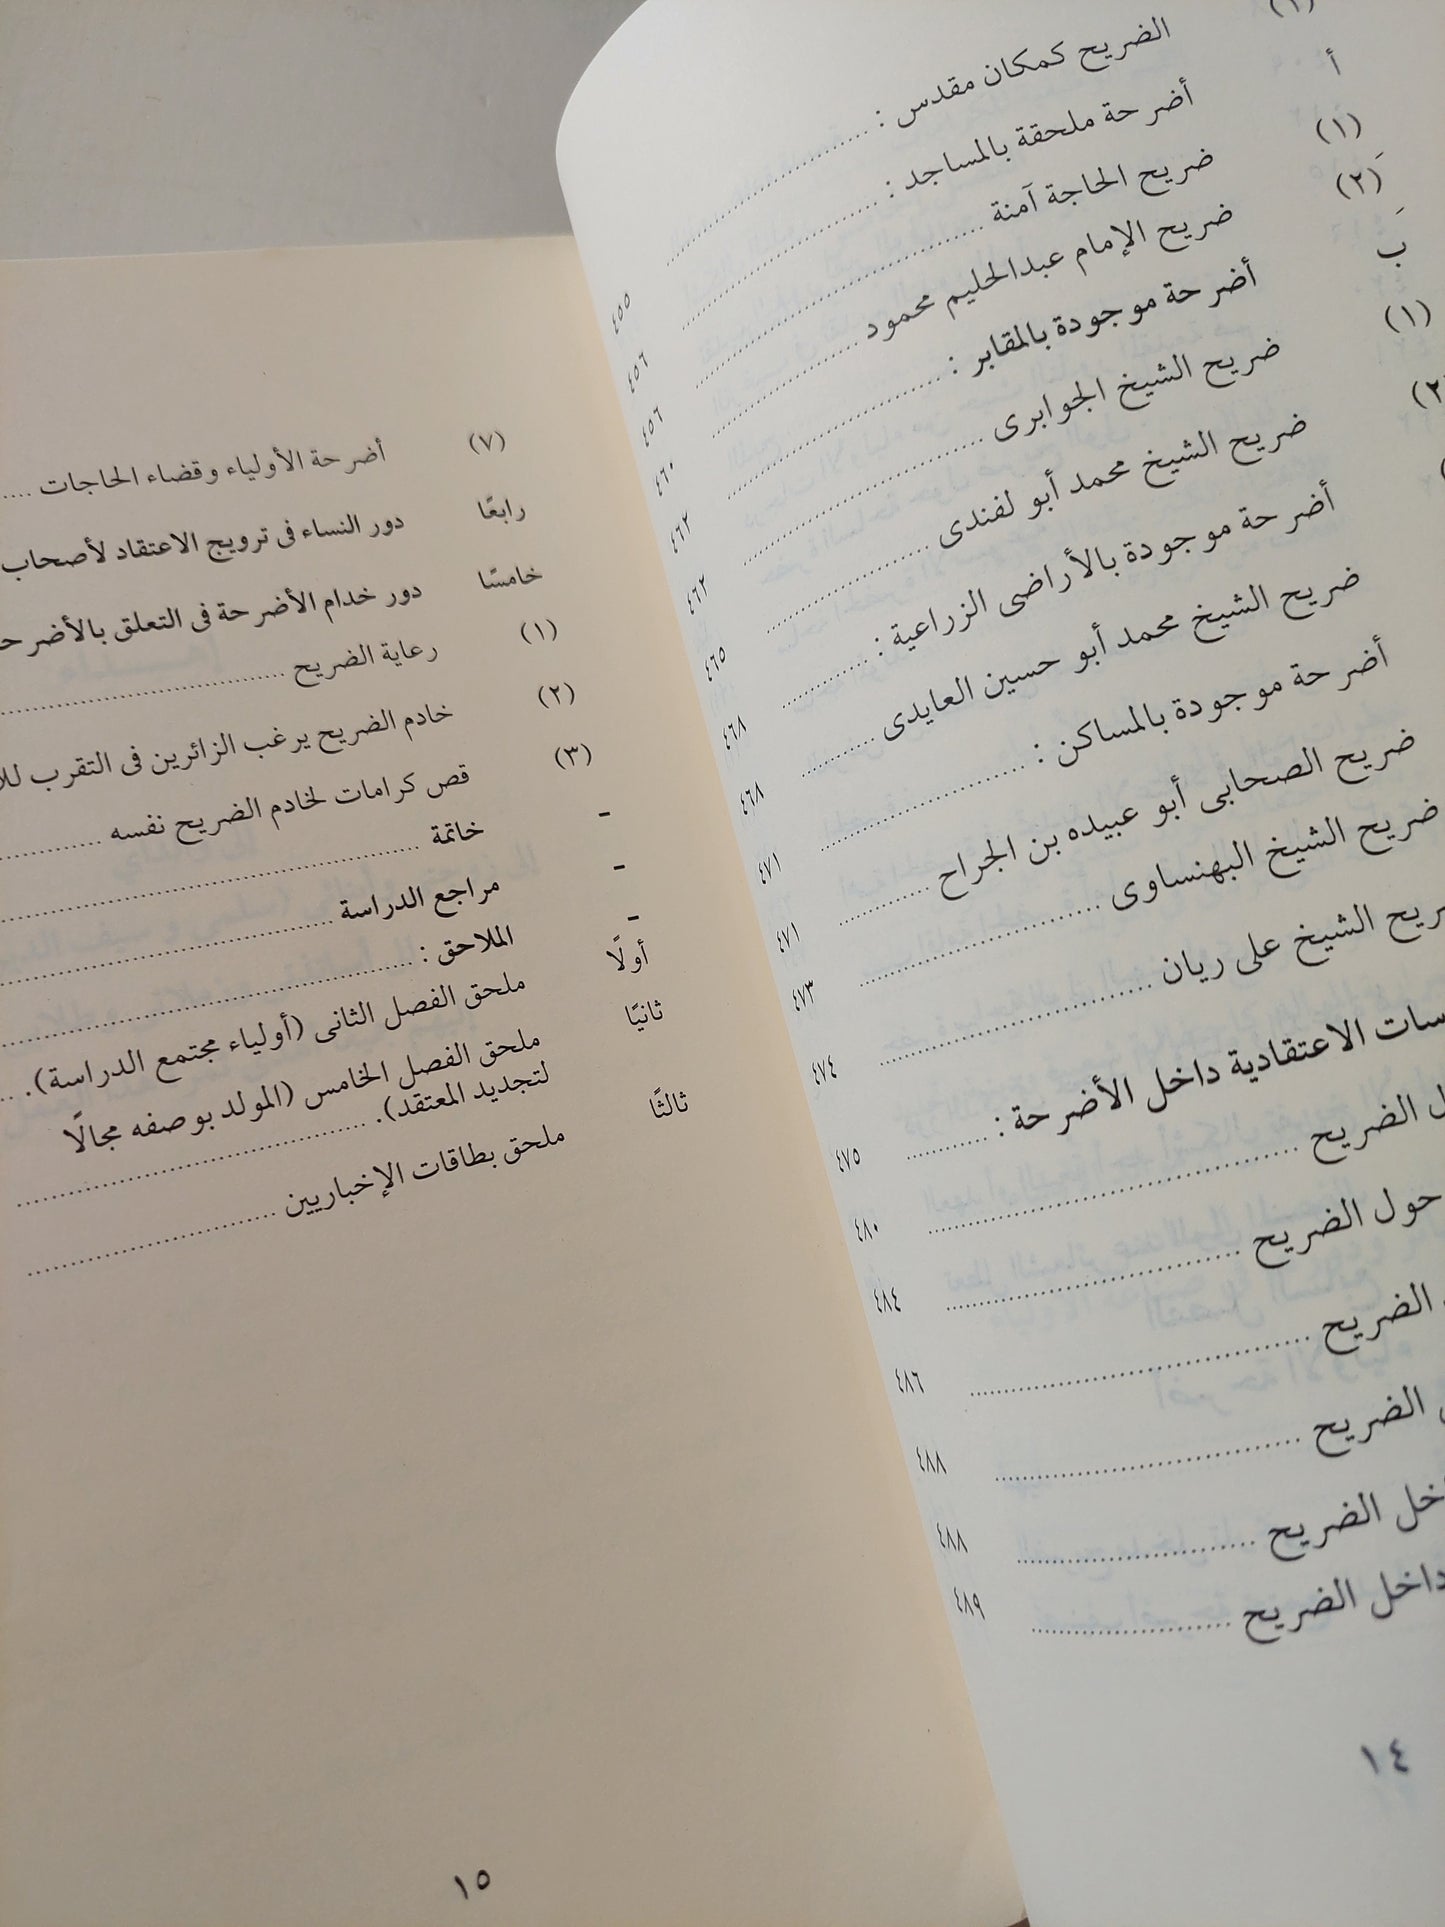 الضريح كمكان مقدس : .......... ٤٥٥
أ أضرحة ملحقة بالمساجد : .......... ٤٥٦
(١) ضريح الحاجة آمنة .......... ٤٥٦
(٢) ضريح الإمام عبدالحليم محمود .......... ٤٦٠
ب أضرحة موجودة بالمقابر : .......... ٤٦٢
(١) ضريح الشيخ الجوابرى .......... ٤٦٢
(٢) ضريح الشيخ محمد أبو لفندى .......... ٤٦٥
أضرحة موجودة بالأراضى الزراعية : .......... ٤٦٨
ضريح الشيخ محمد أبو حسين العايدى .......... ٤٦٨
أضرحة موجودة بالمساكن : .......... ٤٧١
ضريح الصحابى أبو عبيده بن الجراح .......... ٤٧١
ضريح الشيخ البهنساوى .......... ٤٧٣
الشيخ على ريان .......... ٤٧٤
الاعتقادية داخل الأضرحة : .......... ٤٧٥
الضريح .......... ٤٨٠
حول الضريح .......... ٤٨٤
الضريح .......... ٤٨٦
الضريح .......... ٤٨٨
الضريح .......... ٤٨٨
داخل الضريح .......... ٤٨٩
١٤
(٧) أضرحة الأولياء وقضاء الحاجات ....
رابعًا دور النساء فى ترويج الاعتقاد لأصحاب
خامسًا دور خدام الأضرحة فى التعلق
(١) رعاية الضريح ..........
(٢) خادم الضريح يرغب الزائرين فى التقرب
(٣) قص كرامات لخادم الضريح نفسه ..........
- خاتمة ..........
- مراجع الدراسة ..........
- الملاحق : ..........
أولًا ملحق الفصل الثانى (أولياء مجتمع الدراسة). ..
ثانيًا ملحق الفصل الخامس (المولد بوصفه مجالًا
لتجديد المعتقد). ..........
ثالثًا ملحق بطاقات الإخباريين ..........
١٥